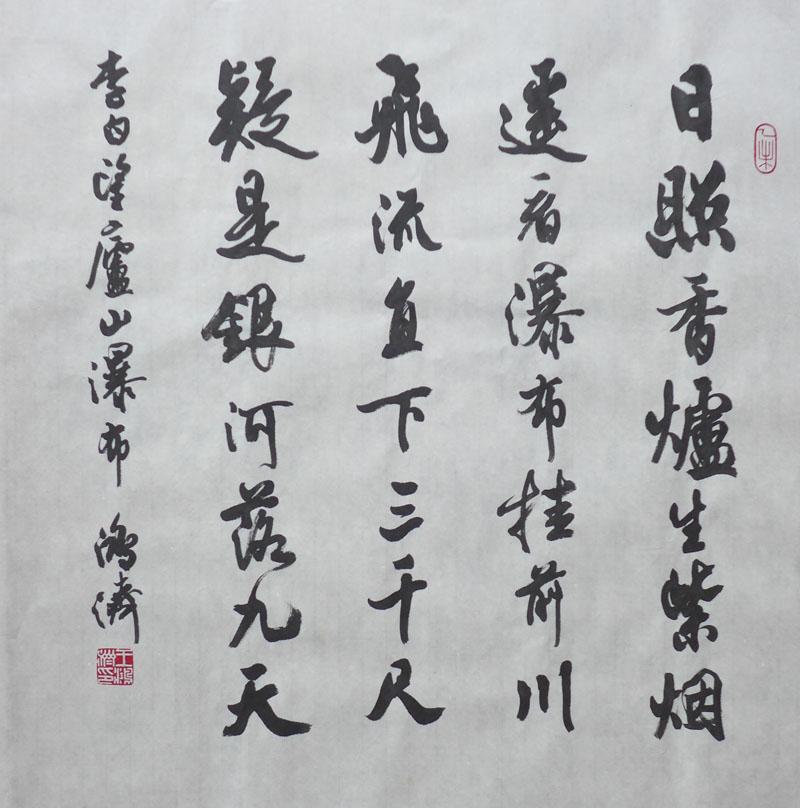 日照香爐生紫烟
遥看瀑布挂前川
飛流直下三千尺
疑是銀河落九天
李白望廬山瀑布 鴻濤